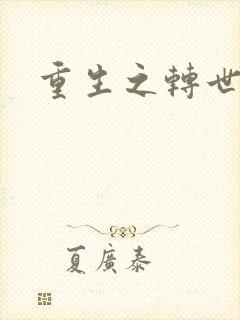 重生之轉世
夏廣泰